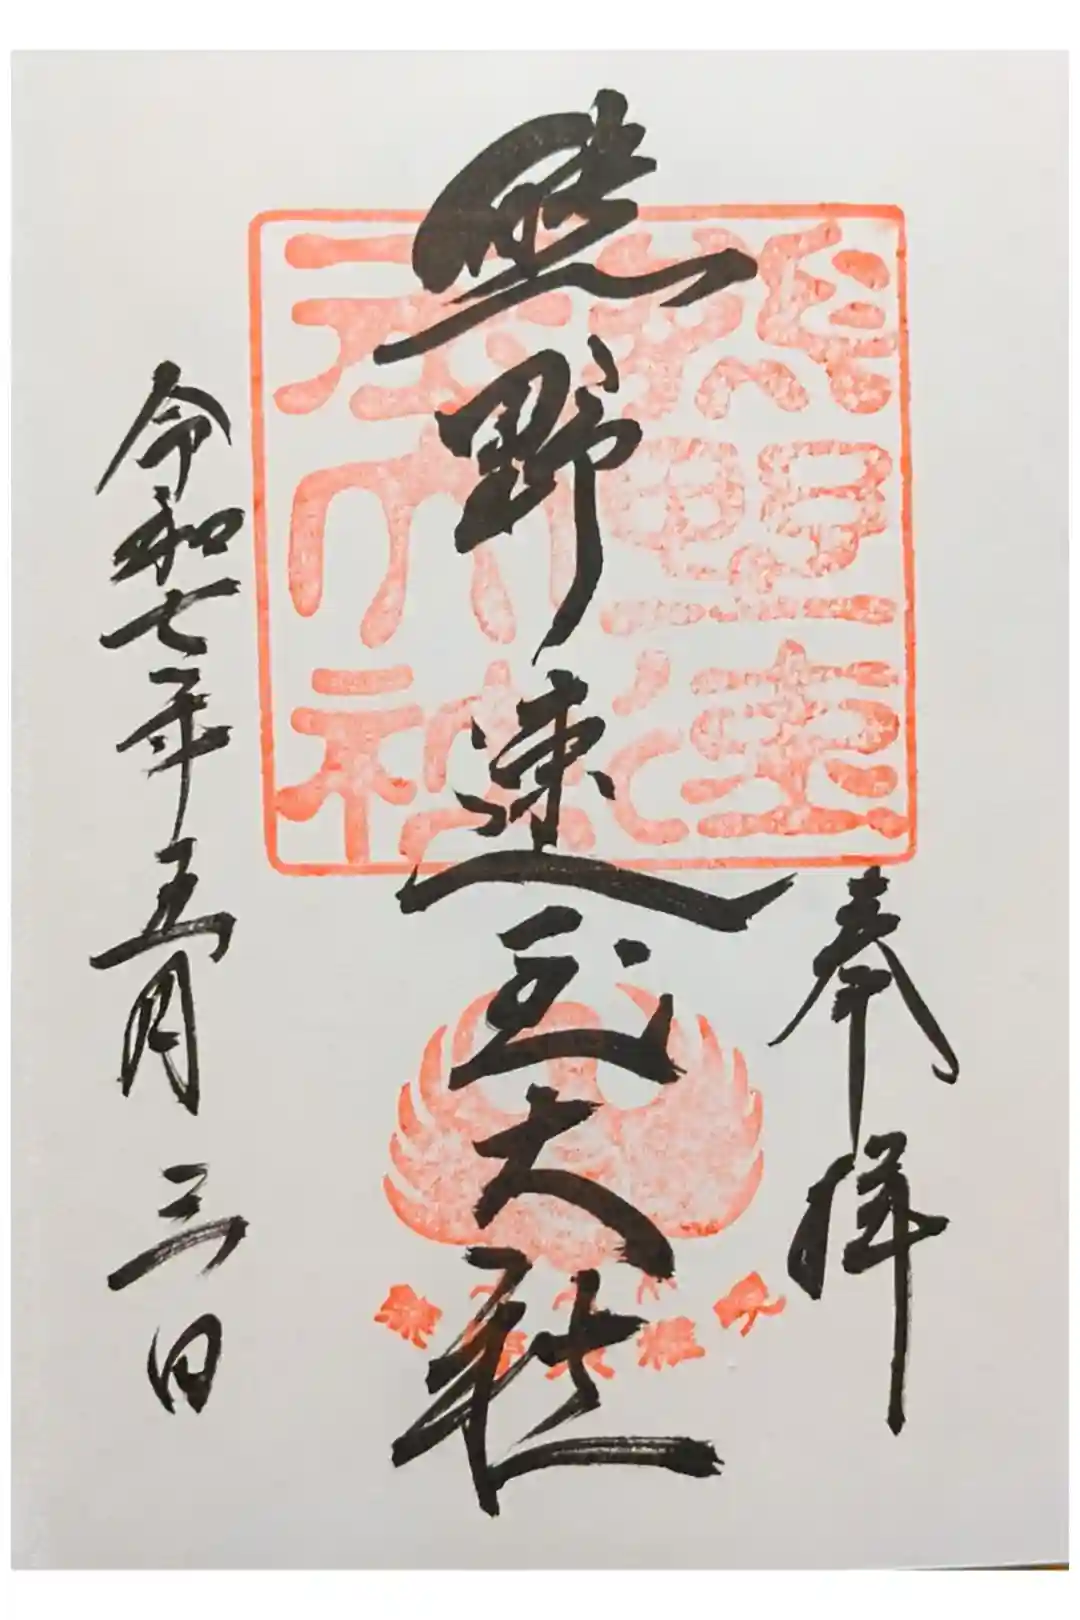 奉拝
熊野速玉大社
令和七年五月三日
熊野速
玉大社